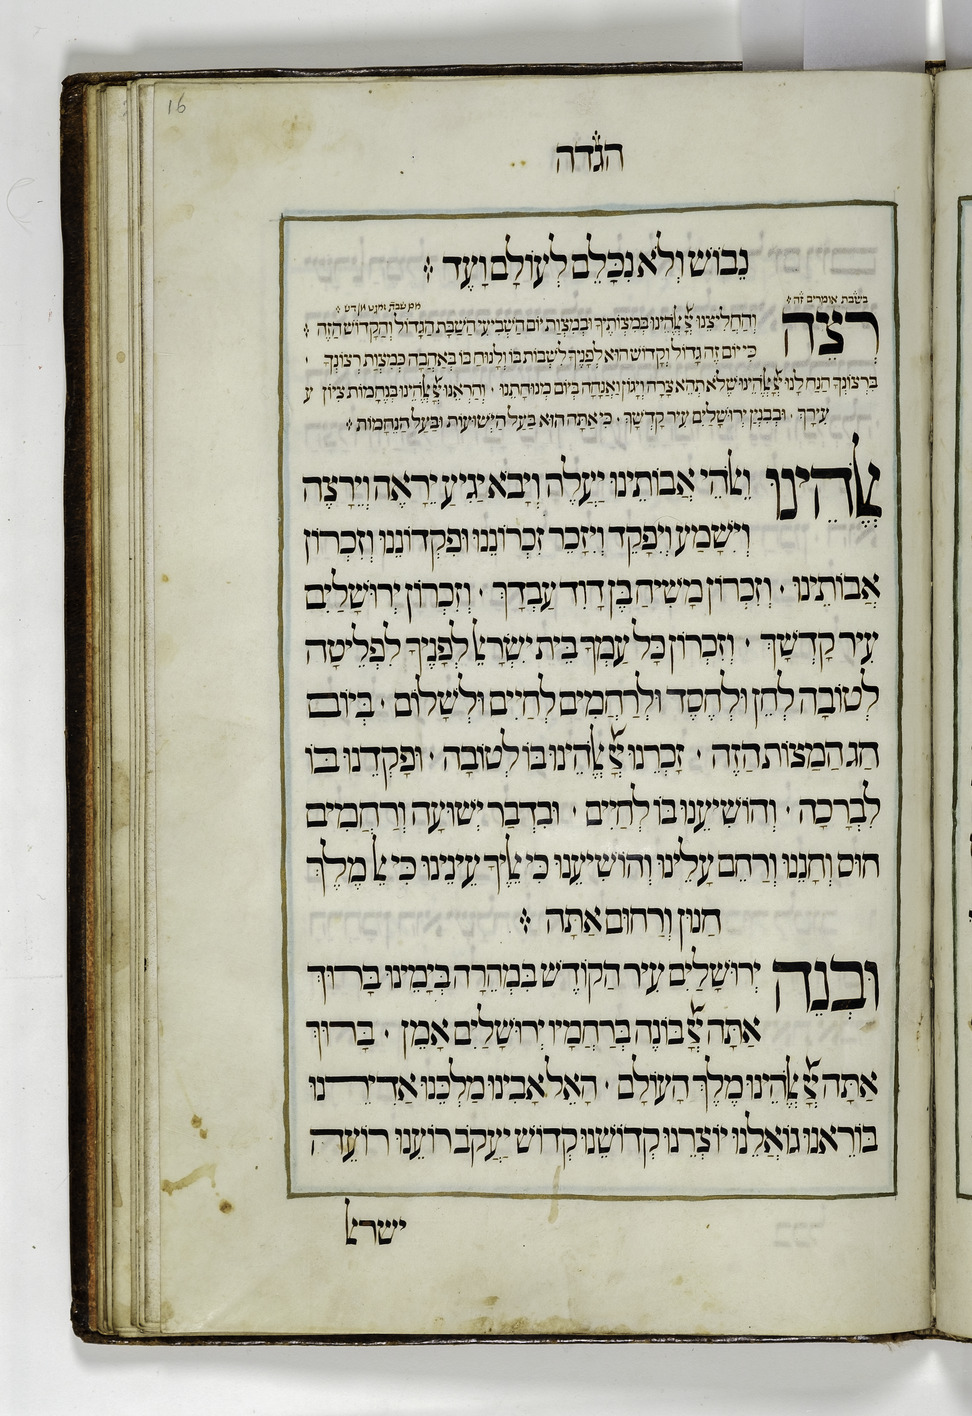 16
הגדה
נֵבוֹשׁ וְלֹא נִכָּלֵם לְעוֹלָם וָעֶד
בשבת אומרים זה
רְצֵה וְהַחֲלִיצֵנוּ אֱלֹהֵינוּ בְּמִצְוֹתֶיךָ וּבְמִצְוַת יוֹם הַשְּׁבִיעִי הַשַּׁבָּת הַגָּדוֹל וְהַקָּדוֹשׁ הַזֶּה
כִּי יוֹם זֶה גָּדוֹל וְקָדוֹשׁ הוּא לְפָנֶיךָ לִשְׁבּוֹת בּוֹ וְלָנוּחַ בּוֹ בְּאַהֲבָה כְּמִצְוַת רְצוֹנֶךָ
בִּרְצוֹנְךָ הַנַּח לָנוּ אֱלֹהֵינוּ שֶׁלֹּא תְהֵא צָרָה וְיָגוֹן וַאֲנָחָה בְּיוֹם מְנוּחָתֵנוּ · וְהַרְאֵנוּ אֱלֹהֵינוּ בְּנֶחָמוֹת צִיּוֹן ע
עִירֶךָ · וּבְבִנְיַן יְרוּשָׁלַיִם עִיר קָדְשֶׁךָ · כִּי אַתָּה הוּא בַּעַל הַיְשׁוּעוֹת וּבַעַל הַנֶּחָמוֹת
אֱלֹהֵינוּ וֵאלֹהֵי אֲבוֹתֵינוּ יַעֲלֶה וְיָבֹא יַגִּיעַ יֵרָאֶה וְיֵרָצֶה
וְיִשָּׁמַע וְיִפָּקֵד וְיִזָּכֵר זִכְרוֹנֵנוּ וּפִקְדוֹנֵנוּ וְזִכְרוֹן
אֲבוֹתֵינוּ · וְזִכְרוֹן מָשִׁיחַ בֶּן דָּוִד עַבְדֶּךָ · וְזִכְרוֹן יְרוּשָׁלַיִם
עִיר קָדְשֶׁךָ · וְזִכְרוֹן כָּל עַמְּךָ בֵּית יִשְׂרָאֵל לְפָנֶיךָ לִפְלֵיטָה
לְטוֹבָה לְחֵן וּלְחֶסֶד וּלְרַחֲמִים לְחַיִּים וּלְשָׁלוֹם · בְּיוֹם
חַג הַמַּצּוֹת הַזֶּה · זָכְרֵנוּ אֱלֹהֵינוּ בּוֹ לְטוֹבָה · וּפָקְדֵנוּ בוֹ
לִבְרָכָה · וְהוֹשִׁיעֵנוּ בוֹ לְחַיִּים · וּבִדְבַר יְשׁוּעָה וְרַחֲמִים
חוּס וְחָנֵּנוּ וְרַחֵם עָלֵינוּ וְהוֹשִׁיעֵנוּ כִּי אֵלֶיךָ עֵינֵינוּ כִּי אֵל מֶלֶךְ
חַנּוּן וְרַחוּם אַתָּה
וּבְנֵה יְרוּשָׁלַיִם עִיר הַקּוֹדֶשׁ בִּמְהֵרָה בְּיָמֵינוּ בָּרוּךְ
אַתָּה בּוֹנֶה בְרַחֲמָיו יְרוּשָׁלַיִם אָמֵן · בָּרוּךְ
אַתָּה אֱלֹהֵינוּ מֶלֶךְ הָעוֹלָם · הָאֵל אָבִינוּ מַלְכֵּנוּ אַדִּירֵנוּ
בּוֹרְאֵנוּ גּוֹאֲלֵנוּ יוֹצְרֵנוּ קְדוֹשֵׁנוּ קְדוֹשׁ יַעֲקֹב רוֹעֵנוּ רוֹעֵה
ישראל